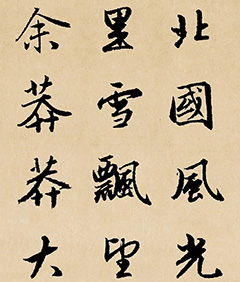 北國風光
里雪飄望
余莽莽大